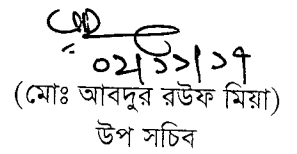 ০২/১১/১৭
(মোঃ আবদুর রউফ মিয়া)
উপ সচিব